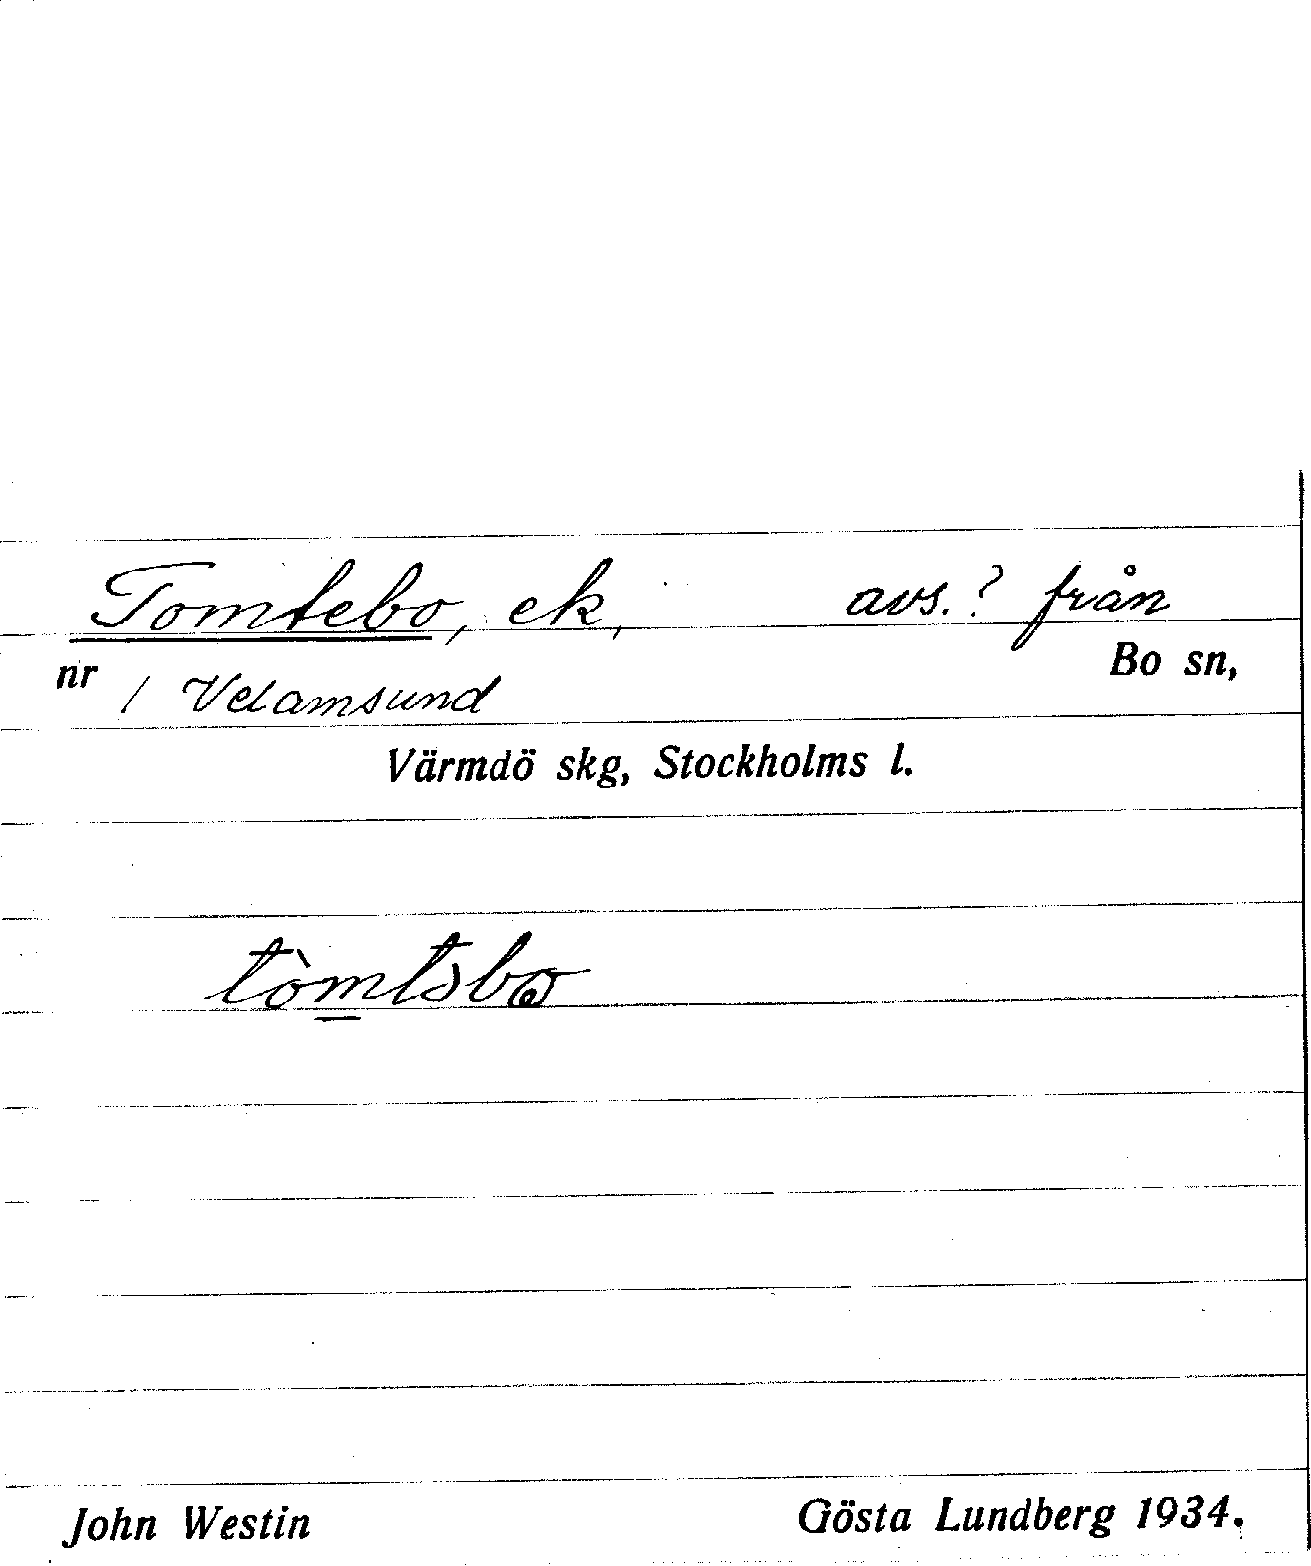 Tomtebo, ek, avs.? från
nr 1 Velamsund Bo sn,
Värmdö skg, Stockholms l.
tòmtəbo
John Westin Gösta Lundberg 1934.